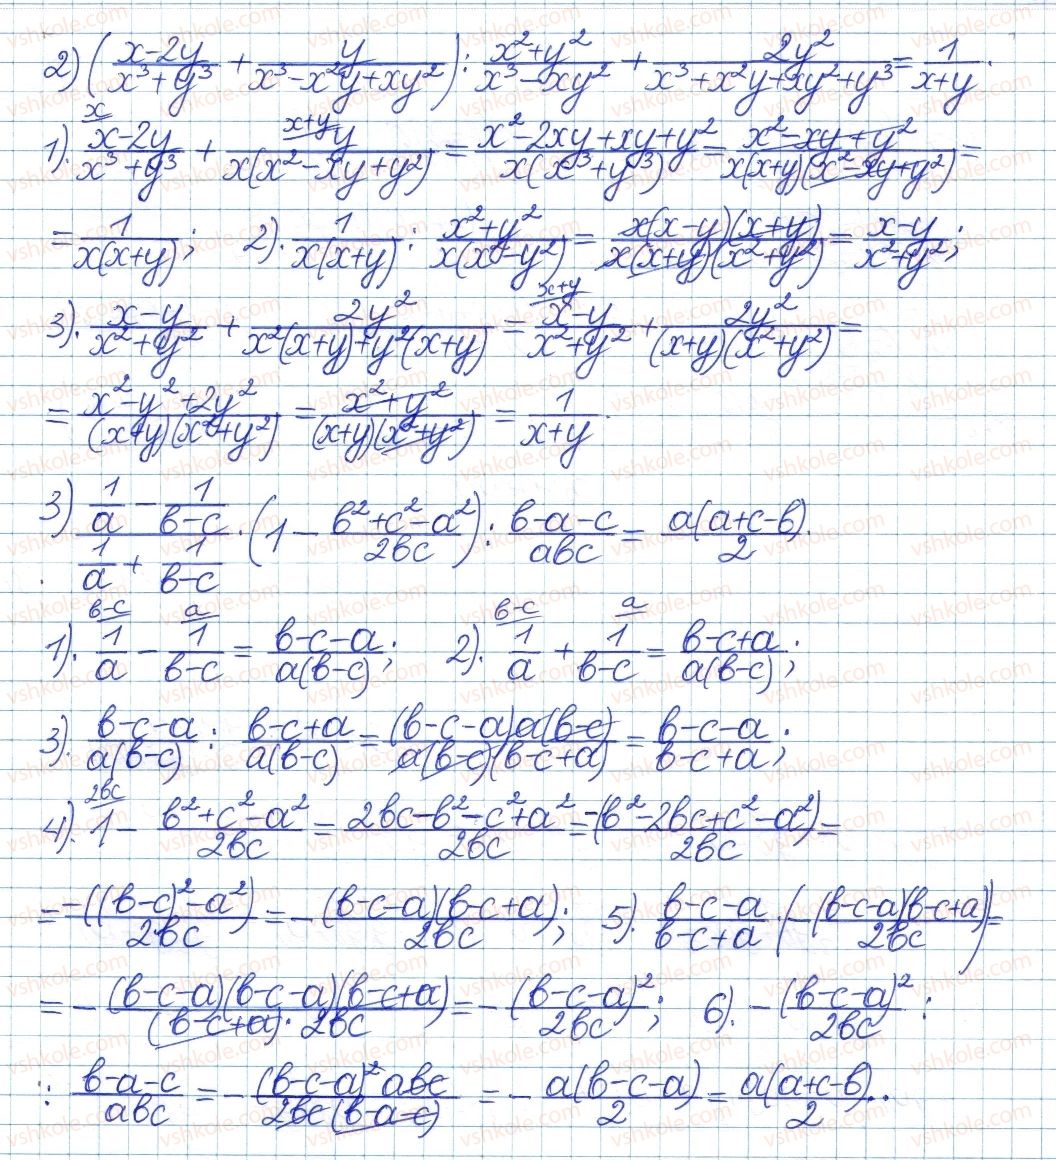 2) ( (x-2y)/(x³+y³) + y/(x³-x²y+xy²) ) : (x²+y²)/(x³-xy²) + 2y²/(x³+x²y+xy²+y³) = 1/(x+y).
1). (x-2y)/(x³+y³) [x] + y/(x(x²-xy+y²)) [x+y] = (x²-2xy+xy+y²)/(x(x³+y³)) = (x²-xy+y²)/(x(x+y)(x²-xy+y²)) =
= 1/(x(x+y)); 2). 1/(x(x+y)) : (x²+y²)/(x(x²-y²)) = (x(x-y)(x+y))/(x(x+y)(x²+y²)) = (x-y)/(x²+y²);
3). (x-y)/(x²+y²) + 2y²/(x²(x+y)+y²(x+y)) = (x-y)/(x²+y²) [x+y] + 2y²/((x+y)(x²+y²)) =
= (x²-y²+2y²)/((x+y)(x²+y²)) = (x²+y²)/((x+y)(x²+y²)) = 1/(x+y).
3) (1/a - 1/(b-c))/(1/a + 1/(b-c)) · (1 - (b²+c²-a²)/(2bc)) : (b-a-c)/(abc) = a(a+c-b)/2.
1). 1/a [b-c] - 1/(b-c) [a] = (b-c-a)/(a(b-c)); 2). 1/a [b-c] + 1/(b-c) [a] = (b-c+a)/(a(b-c));
3). (b-c-a)/(a(b-c)) : (b-c+a)/(a(b-c)) = ((b-c-a)a(b-c))/(a(b-c)(b-c+a)) = (b-c-a)/(b-c+a);
4). 1 [2bc] - (b²+c²-a²)/(2bc) = (2bc-b²-c²+a²)/(2bc) = -(b²-2bc+c²-a²)/(2bc) =
= -((b-c)²-a²)/(2bc) = - (b-c-a)(b-c+a)/(2bc); 5). (b-c-a)/(b-c+a) · (- (b-c-a)(b-c+a)/(2bc)) =
= - (b-c-a)(b-c-a)(b-c+a)/((b-c+a)·2bc) = - (b-c-a)²/(2bc); 6). - (b-c-a)²/(2bc) :
: (b-a-c)/(abc) = - (b-c-a)²abc/(2bc(b-a-c)) = - a(b-c-a)/2 = a(a+c-b)/2.